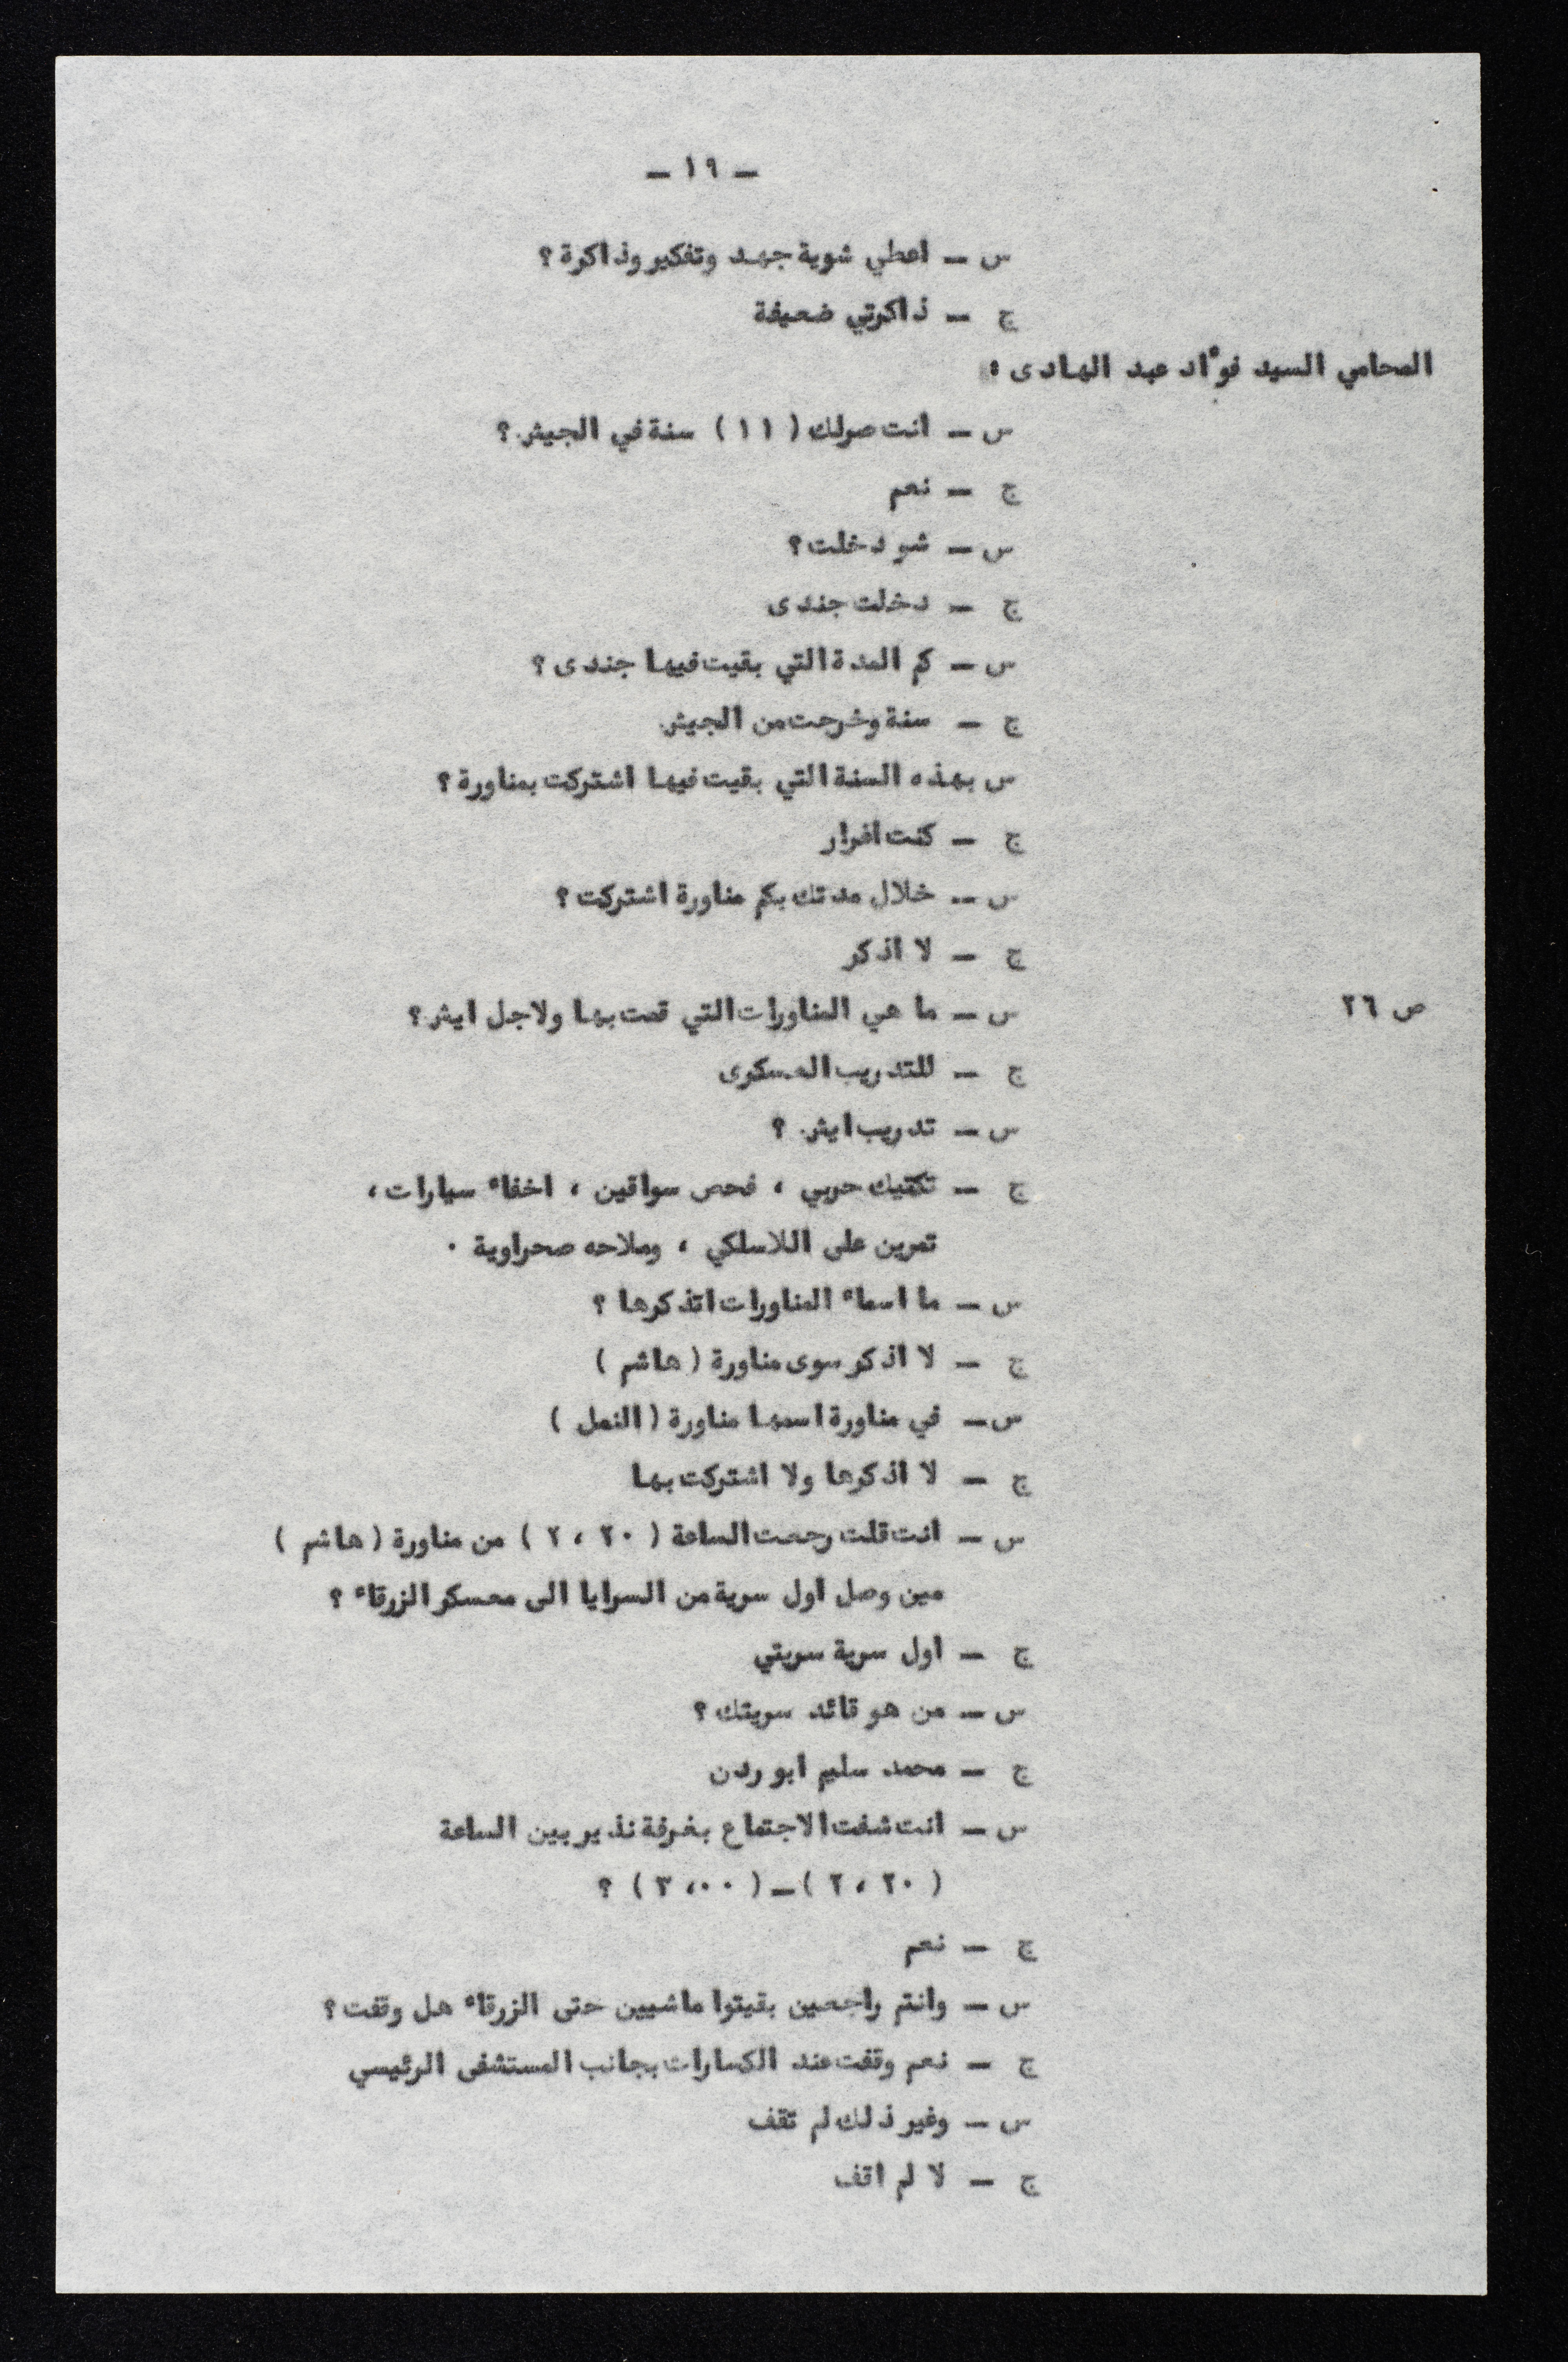 ـ ١٩ ـ
س ـ اعطي شوية جهد وتفكير وذاكرة ؟
ج ـ ذاكرتي ضعيفة
المحامي السيد فوٴاد عبد الهادى :
س ـ انت صرلك ( ١١ ) سنة في الجيش ؟
ج ـ نعم
س ـ شو دخلت ؟
ج ـ دخلت جندى
س ـ كم المدة التي بقيت فيها جندى ؟
ج ـ سنة وخرجت من الجيش
س بهذه السنة التي بقيت فيها اشتركت بمناورة ؟
ج ـ كنت افرار
س ـ خلال مدتك بكم مناورة اشتركت ؟
ج ـ لا اذكر
ص ٢٦ س ـ ما هي المناورات التي قمت بها ولاجل ايش ؟
ج ـ للتدريب العسكرى
س ـ تدريب ايش ؟
ج ـ تكتيك حربي ، فحص سواقين ، اخفاء سيارات ،
تمرين على اللاسلكي ، وملاحه صحراوية .
س ـ ما اسماء المناورات اتذكرها ؟
ج ـ لا اذكر سوى مناورة ( هاشم )
س ـ في مناورة اسمها مناورة ( النمل )
ج ـ لا اذكرها ولا اشتركت بها
س ـ انت قلت رجعت الساعة ( ٢٠ ، ٢ ) من مناورة ( هاشم )
مين وصل اول سرية من السرايا الى معسكر الزرقاء ؟
ج ـ اول سرية سريتي
س ـ من هو قائد سريتك ؟
ج ـ محمد سليم ابو ردن
س ـ انت شفت الاجتماع بغرفة نذير بين الساعة
( ٢٠ ، ٢ ) ـ ( ٠٠ ، ٣ ) ؟
ج ـ نعم
س ـ وانتم راجعين بقيتوا ماشيين حتى الزرقاء هل وقفت ؟
ج ـ نعم وقفت عند الكسارات بجانب المستشفى الرئيسي
س ـ وغير ذلك لم تقف
ج ـ لا لم اقف